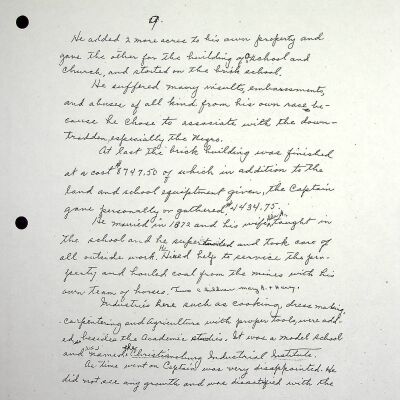 9.
He added 2 more acres to his own property and
gave the other for the building of school and
church, and started on the brick school.
He suffered many insults, embarassments,
and abuses of all kind from his own race, be-
cause he chose to associate with the down-
trodden, especially the Negro.
At last the brick building was finished
at a cost $8747.50 of which in addition to the
land and school equiptment given, the Captain
gave personally or gathered, $4434.75.
He married in 1872 and his wife taught in
the school and he superintended and took care of
all outside work. He Hired help to service the pro-
perty and hauled coal from the mines with his
own team of horses. Two children Mary A. + Harry.
Industries here such as cooking, dress making,
carpentering and Agriculture with proper tools, were add-
ed, besides the Academic studies. It was a model school
and was named the Christiansburg Industrial Institute.
As time went on Captain was very disappointed. He
did not see any growth and was dissatified with the